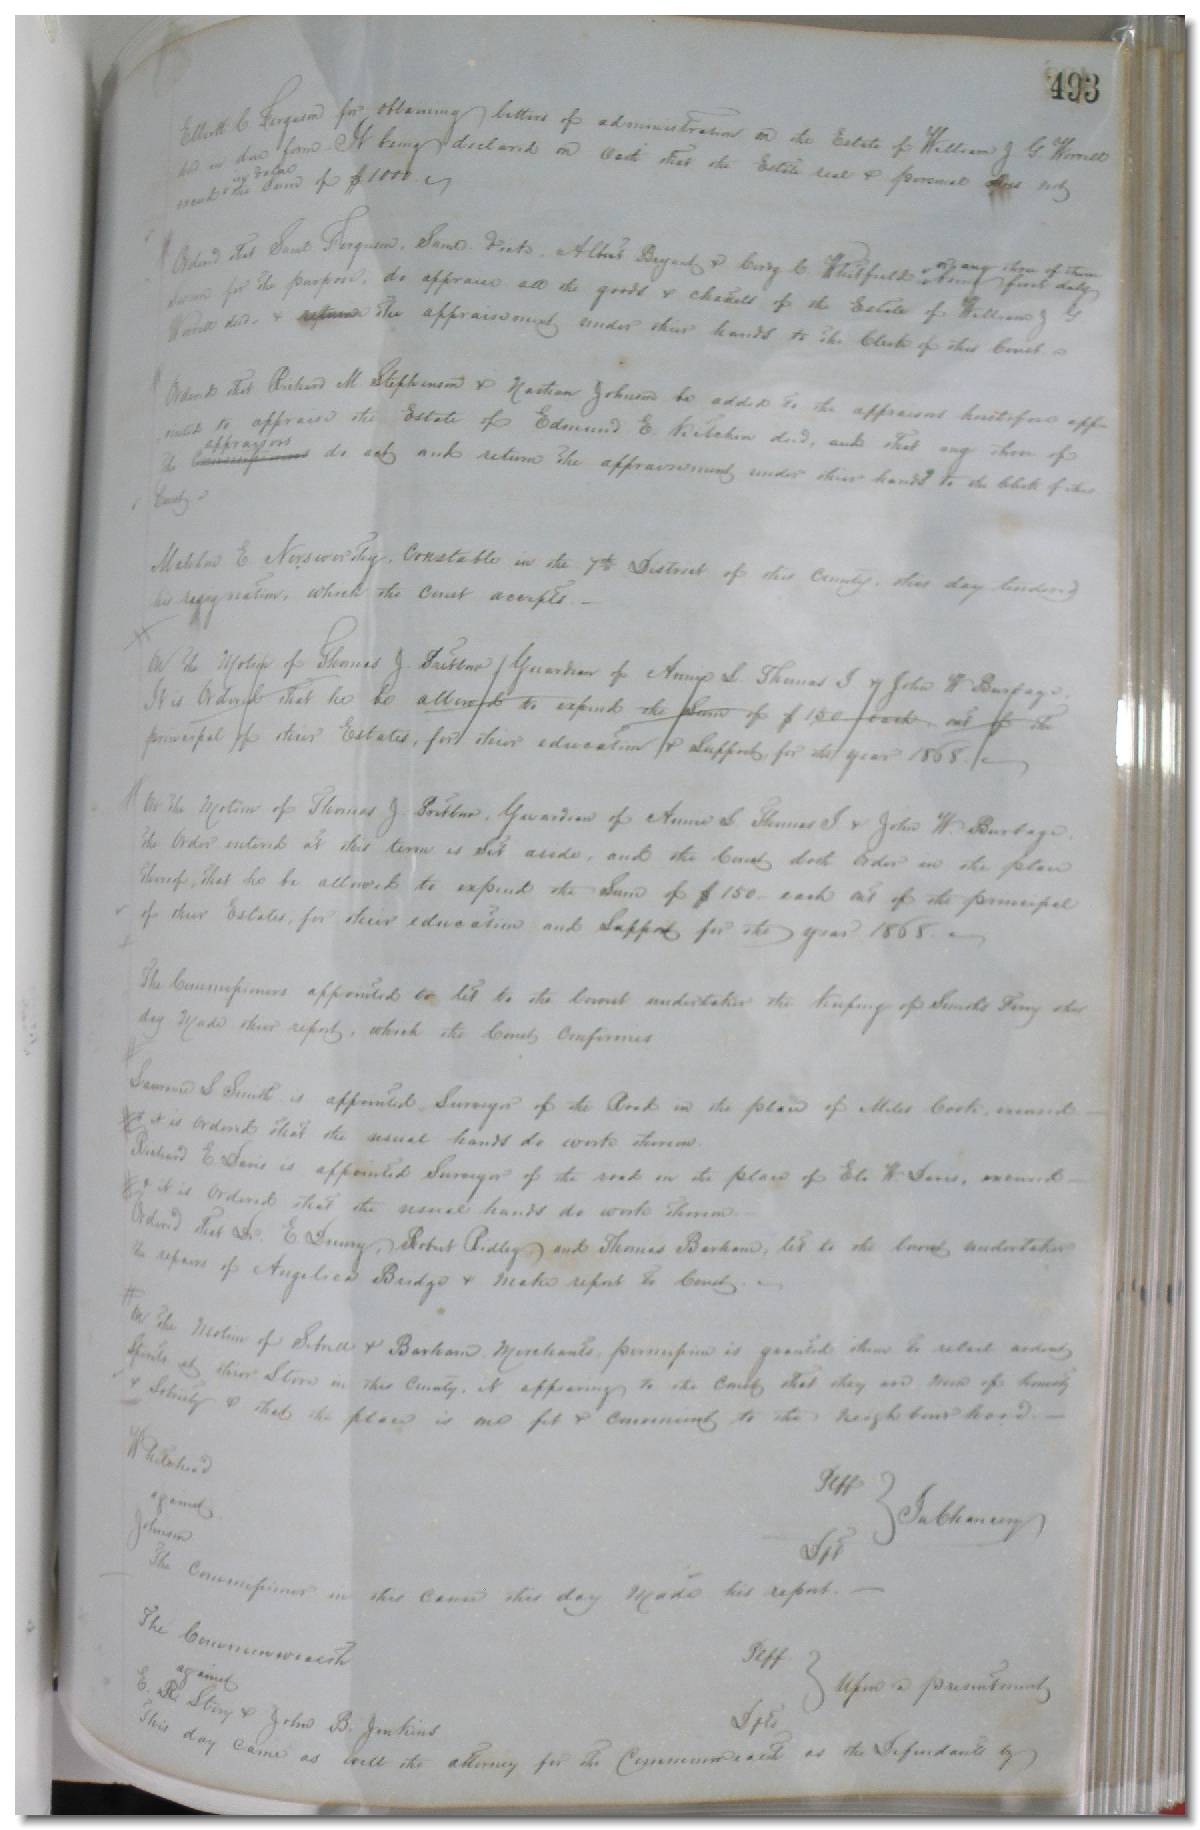 493
Elliott C Ferguson for obtaining letters of administration on the Estate of William J G Worrell
ded in due form. It being declared on Oath that the Estate real & personal does not
in value
exceed the Sum of $1000.
Ordered that Saml Ferguson, Saml. Albert Bryant & C Whitfield or any three of them
being first duly
sworn for the purpose, do appraise all the goods & chattels of the Estate of William J G
Worrell decd. & return the appraisement under their hands to the Clerk of this Court
Ordered that Richard M Stephenson & Nathan Johnson be added to the appraisers heretofore app-
ointed to appraise the Estate of Edmund E. Kitchen decd, and that any three of
appraisors
the do act and return the appraisement under their hands to the Clerk of this
Court
E Norsworthy, Constable in the 7th District of this County, this day tendered
his resignation, which the Court accepts. —
On the Motion of Thomas J. Guardian of Annie L. Thomas I & John W Burbage.
It is Ordered that he be allowed to expend the Sum of $150 each out of the
principal of their Estates, for their education & Support, for the year 1868.
On the Motion of Thomas J. Guardian of Annie L Thomas I & John W Burbage.
the Order entered at this term is set aside, and the Court doth Order in the place
thereof, that he be allowed to expend the Sum of $150. each out of the principal
of their Estates, for their education and Support for the year 1868.
The Commissioners appointed to let to the lowest undertaker the keeping of Smiths Ferry this
day Made their report, which the Court Confirmes
Lawrence S Smith is appointed Surveyor of the Road in the place of Miles Cook, excused —
& it is Ordered that the usual hands do work thereon.
Richard E Davis is appointed Surveyor of the road in the place of W Davis, excused —
& it is Ordered that the usual hands do work thereon —
Ordered that Dr. E Drewry, Robert Ridley and Thomas Barham, let to the lowest undertaker
the repairs of Angelico Bridge & make report to Court.
On the Motion of & Barham Merchants, permission is granted them to retail ardent
Spirits at their Store in this County, it appearing to the Court that they are men of honesty
& Sobriety & that the place is one fit & Convenient to the neighbourhood. —
Whitehead Plff
against In Chancery
Johnson Dft
The Commissioner in this cause this day Made his report. —
The Commonwealth Plff
against Upon a presentment
E. R. Story & John B. Jenkins Dfts
This day came as well the attorney for the Commonwealth as the Defendants by